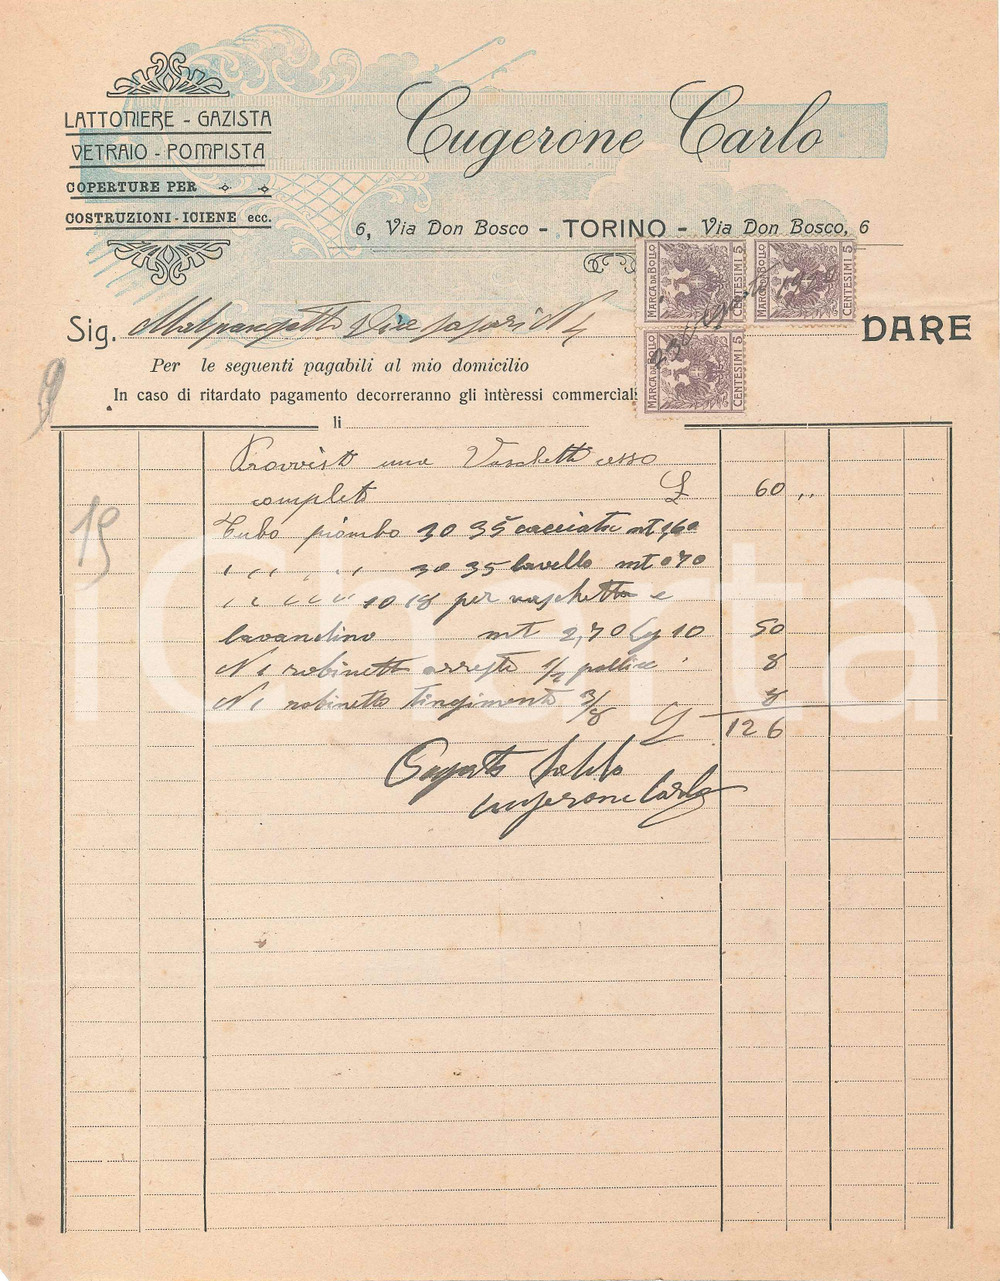 LATTONIERE - GAZISTA
VETRAIO - POMPISTA
COPERTURE PER
COSTRUZIONI - IGIENE ecc.
Cugerone Carlo
6, Via Don Bosco - TORINO - Via Don Bosco, 6
MARCA DA BOLLO CENTESIMI 5
MARCA DA BOLLO CENTESIMI 5
MARCA DA BOLLO CENTESIMI 5
Sig. N 4
DARE
Per le seguenti pagabili al mio domicilio
In caso di ritardato pagamento decorreranno gli intèressi commerciali
li
19
Provvisto una Vaschetta cesso
completo £ 60 ,,
Tubo piombo 30 35 cacciata mt 1,60
" " " " 30 35 lavello mt 0 70
" " " " 10 18 per vaschetta e
lavandino mt 2,70 Cg 10 50
N 1 robinetto arresto 1/2 pollice 8
N 1 robinetto 3/8 8
£ 126
saldo
Cugerone Carlo
iCharta